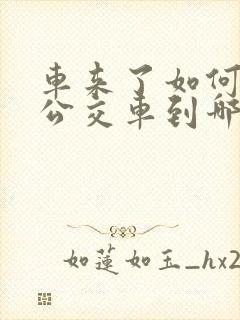 車来了如何
公交車到哪
如蓮如玉_hx2